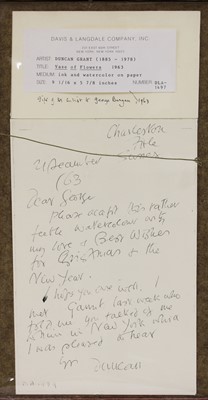 DAVIS & LANGDALE COMPANY, INC.
231 EAST 60th STREET
NEW YORK, NEW YORK 10022
ARTIST DUNCAN GRANT (1885 - 1978)
TITLE Vase of Flowers 1963
MEDIUM ink and watercolor on paper
SIZE 9 1/4 x 5 7/8 inches NUMBER
Gift of the artist to George Bergen, 1963
Charleston
Firle
Sussex
December
/63
Dear George
please accept this rather
feeble watercolour with
my love & Best Wishes
for Christmas & the
New Year.
I hope you are well. I
met last week who
told me you talked of
in New York which
I was pleased to hear
Duncan